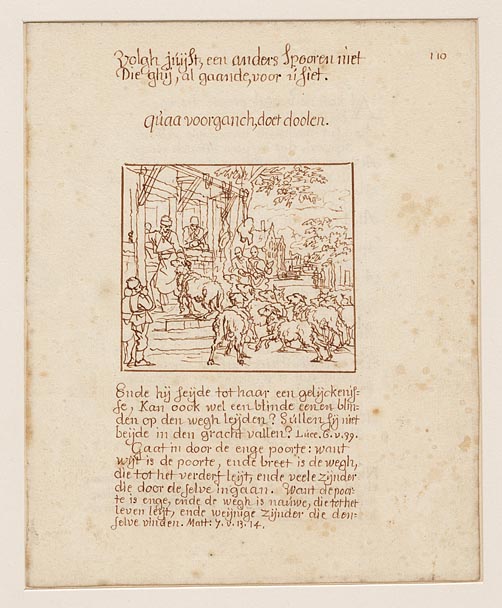 Volgh juijst, een anders Spooren niet
Die ghij, al gaande, voor u siet.
110
quaa voorganch, doet doolen.
Ende hij seijde tot haar een gelijckenis=
se, Kan oock wel een blinde eenen blin
den op den wegh leijden? Sullen sij niet
beijde in den gracht vallen? Luce. 6. v. 39.
Gaat in door de enge poorte: want
wijt is de poorte, ende breet is de wegh,
die tot het verderf leijt, ende veele zijnder
die door de selve ingaan. Want de poor
te is enge, ende de wegh is nauwe, die tot het
leven leijt, ende weijnige zijnder die den=
selve vinden. Matt: 7. v. 13. 14.